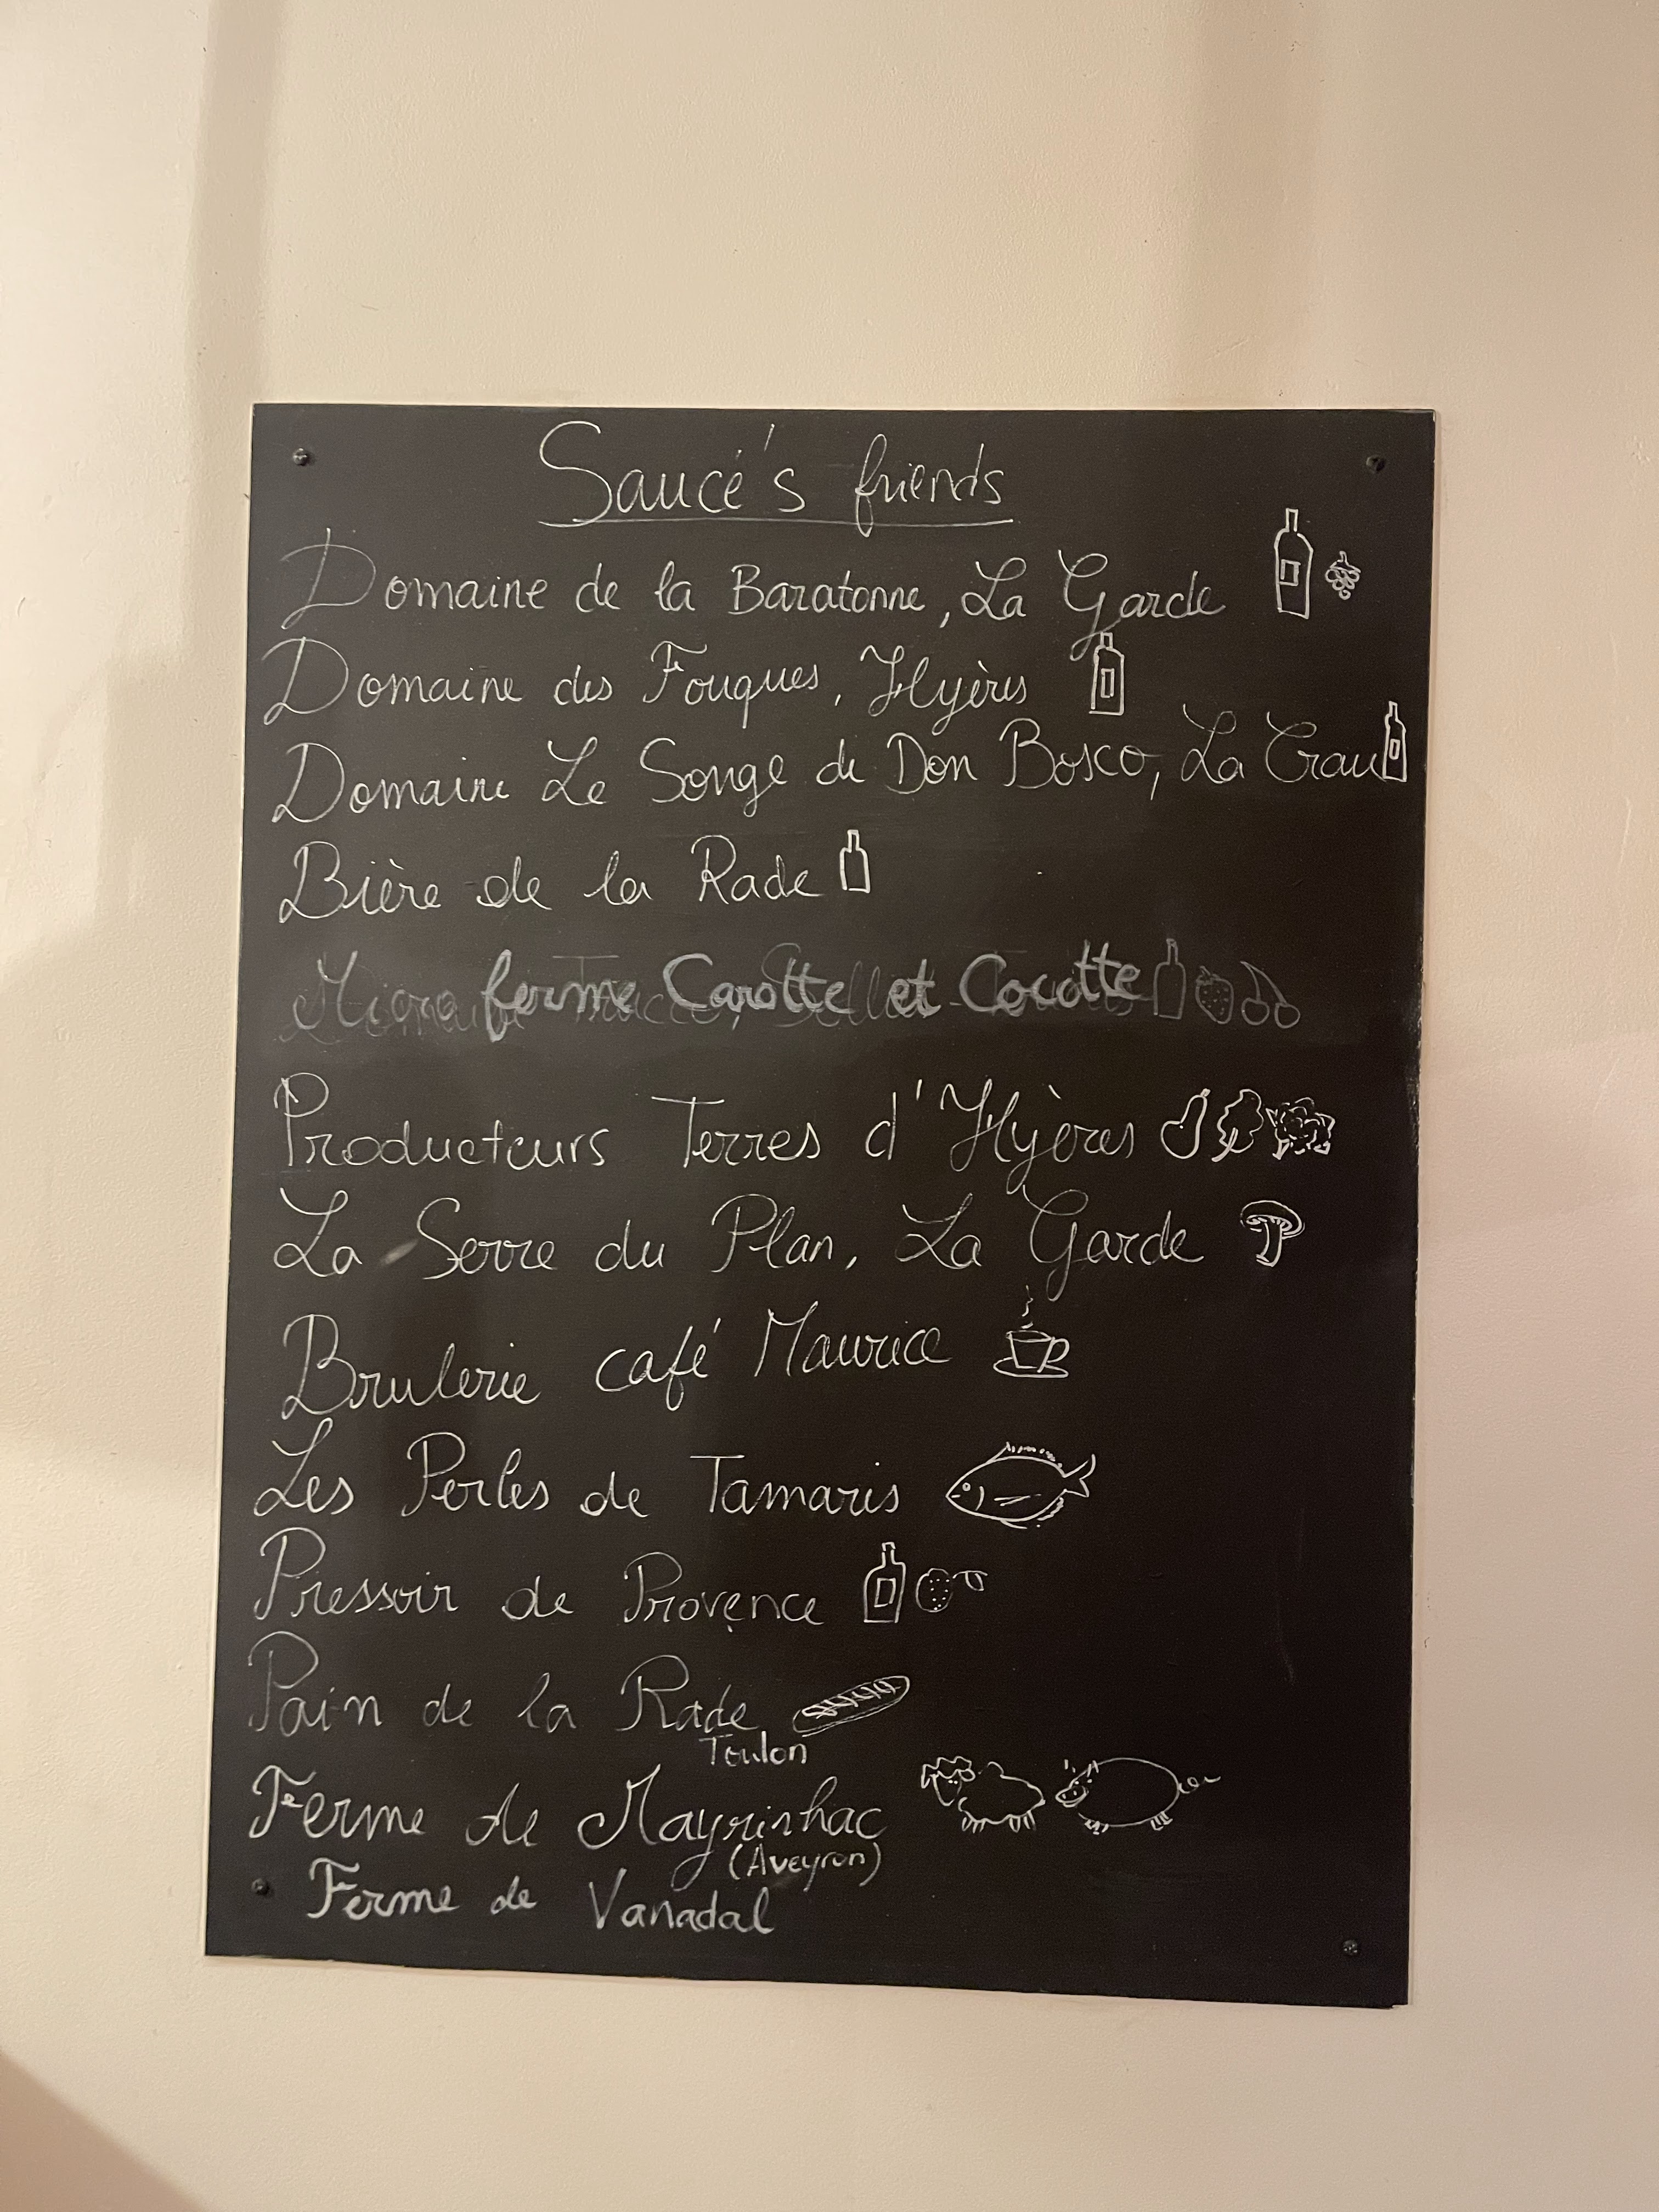 Saucé's friends
Domaine de la Baratonne, La Garde
Domaine des Fouques, Hyères
Domaine Le Songe de Don Bosco, La Crau
Bière de la Rade
Micro ferme Carotte et Cocotte
Producteurs Terres d'Hyères
La Serre du Plan, La Garde
Brulerie café Maurice
Les Perles de Tamaris
Pressoir de Provence
Pain de la Rade
Toulon
Ferme de Mayrinhac
(Aveyron)
Ferme de Vanadal